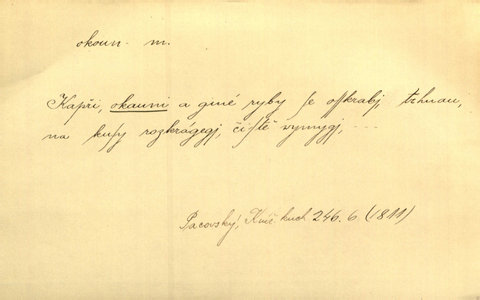 okoun- m.
Kapři, okauni a giné ryby se osskrabj, trhnau,
na kusy rozkrágegj, čistě vymygj, ---
Pacovský, Kniž. kuch 246. 6. (1811)